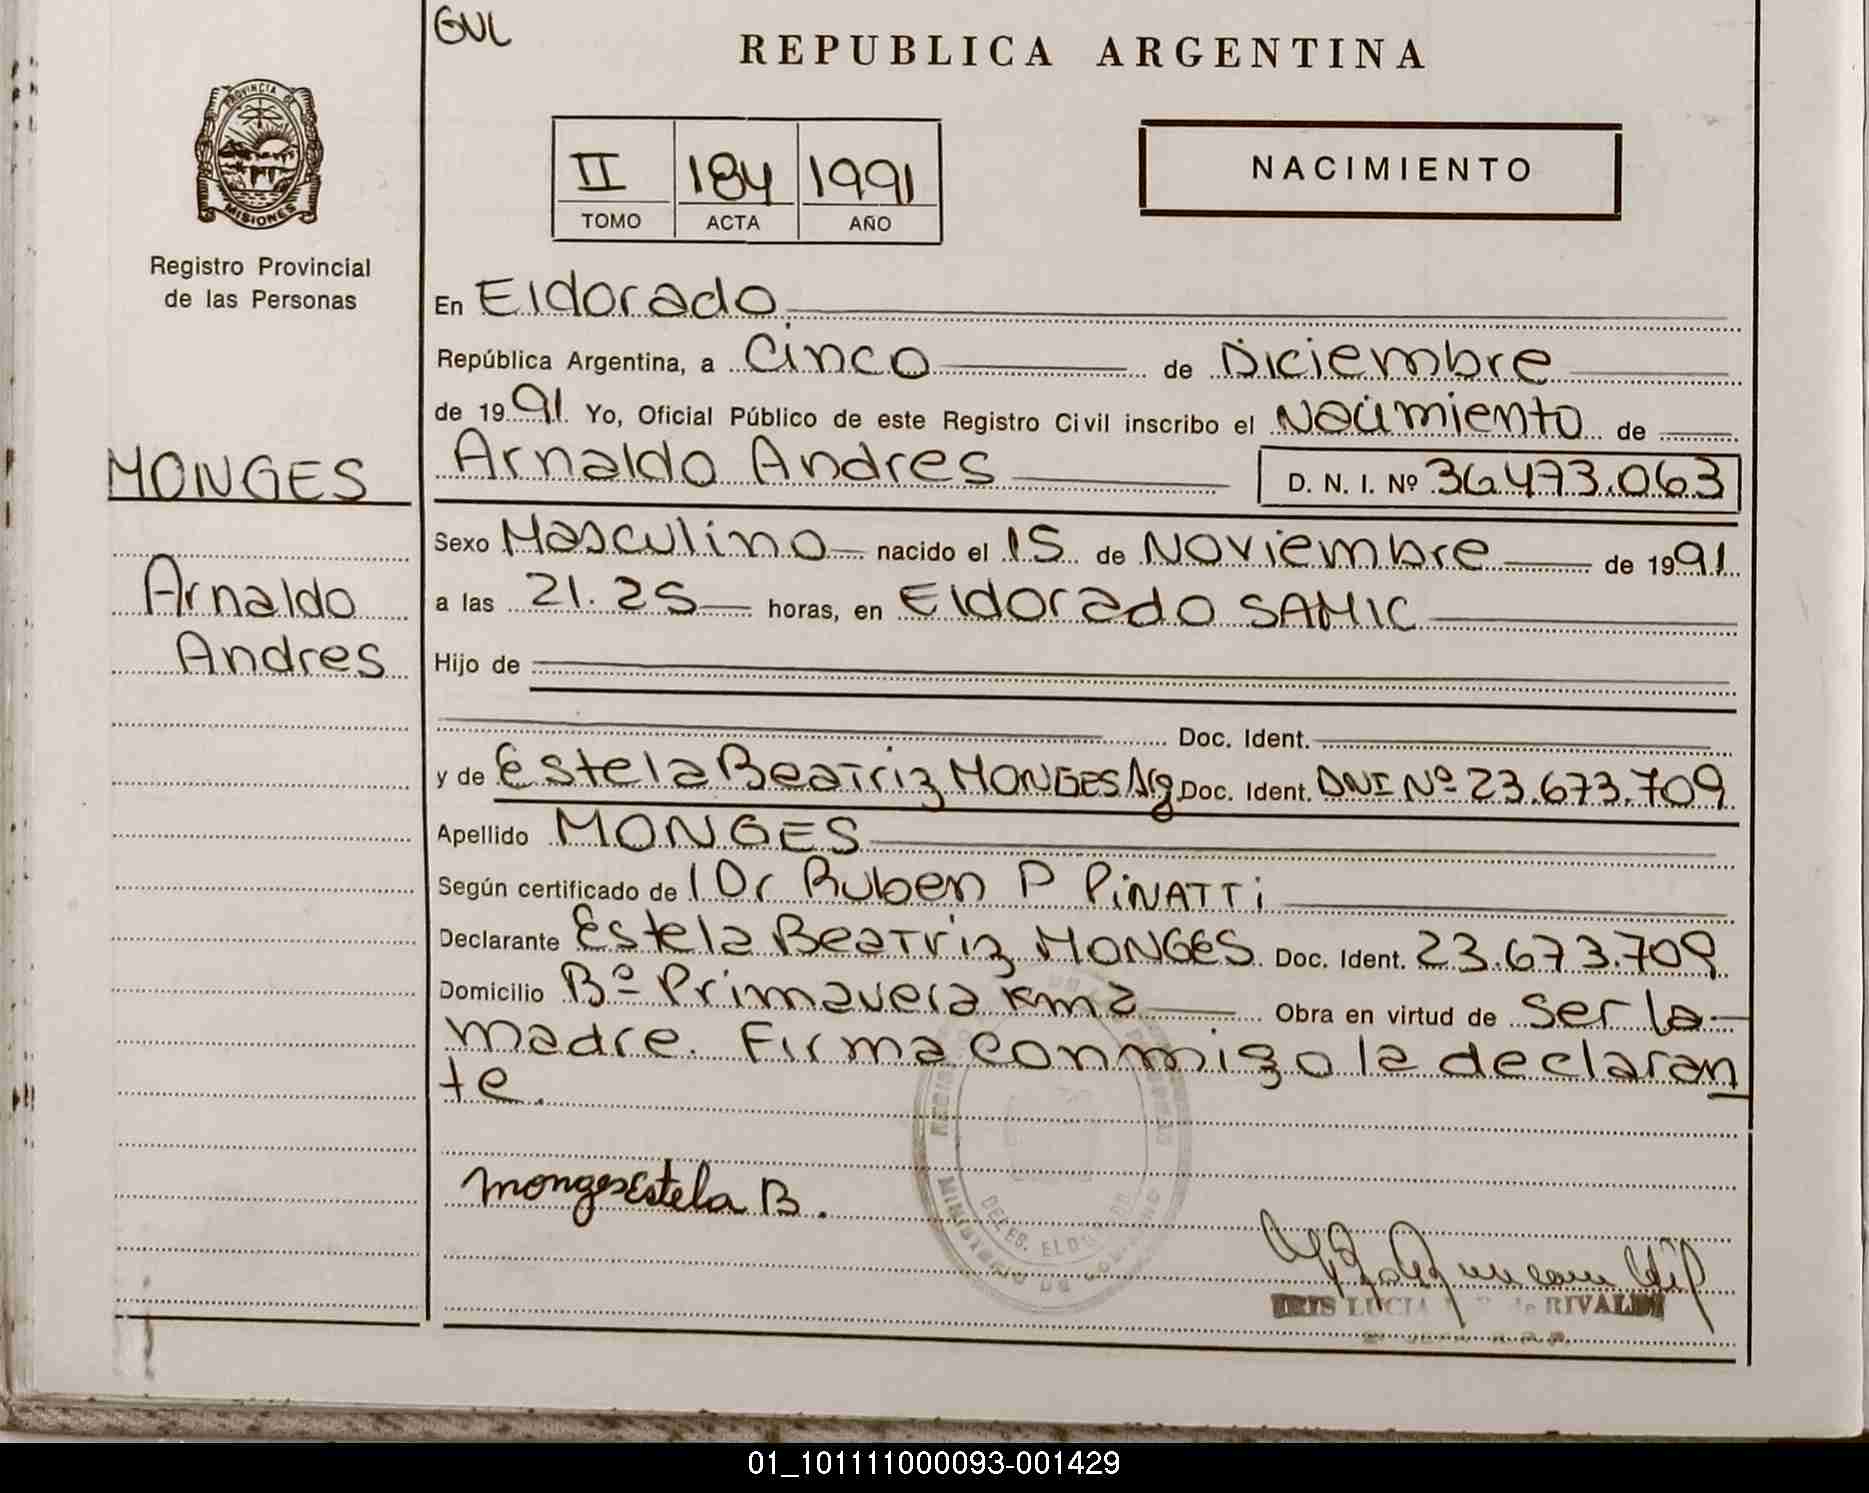 GUL
REPUBLICA ARGENTINA
PROVINCIA DE
MISIONES
Registro Provincial
de las Personas
II 184 1991
TOMO ACTA AÑO
NACIMIENTO
En Eldorado
República Argentina, a Cinco de Diciembre
de 1991 Yo, Oficial Público de este Registro Civil inscribo el Nacimiento de
MONGES
Arnaldo Andres D. N. I. Nº 36.473.063
Sexo Masculino nacido el 15 de Noviembre de 1991
Arnaldo
a las 21.25 horas, en Eldorado SAMIC
Andres
Hijo de
Doc. Ident.
y de Estela Beatriz MONGES Arg Doc. Ident. DNI Nº 23.673.709
Apellido MONGES
Según certificado de 1 Dr Ruben P PiNATTi
Declarante Estela Beatriz MONGES Doc. Ident. 23.673.709
Domicilio Bº Primavera Km 2 Obra en virtud de ser la
madre. Firma conmigo la declaran
te.
Monges Estela B.
MINISTERIO DE GOBIERNO
DELEG. ELDORADO
IRIS LUCIA de RIVALDI
01_101111000093-001429